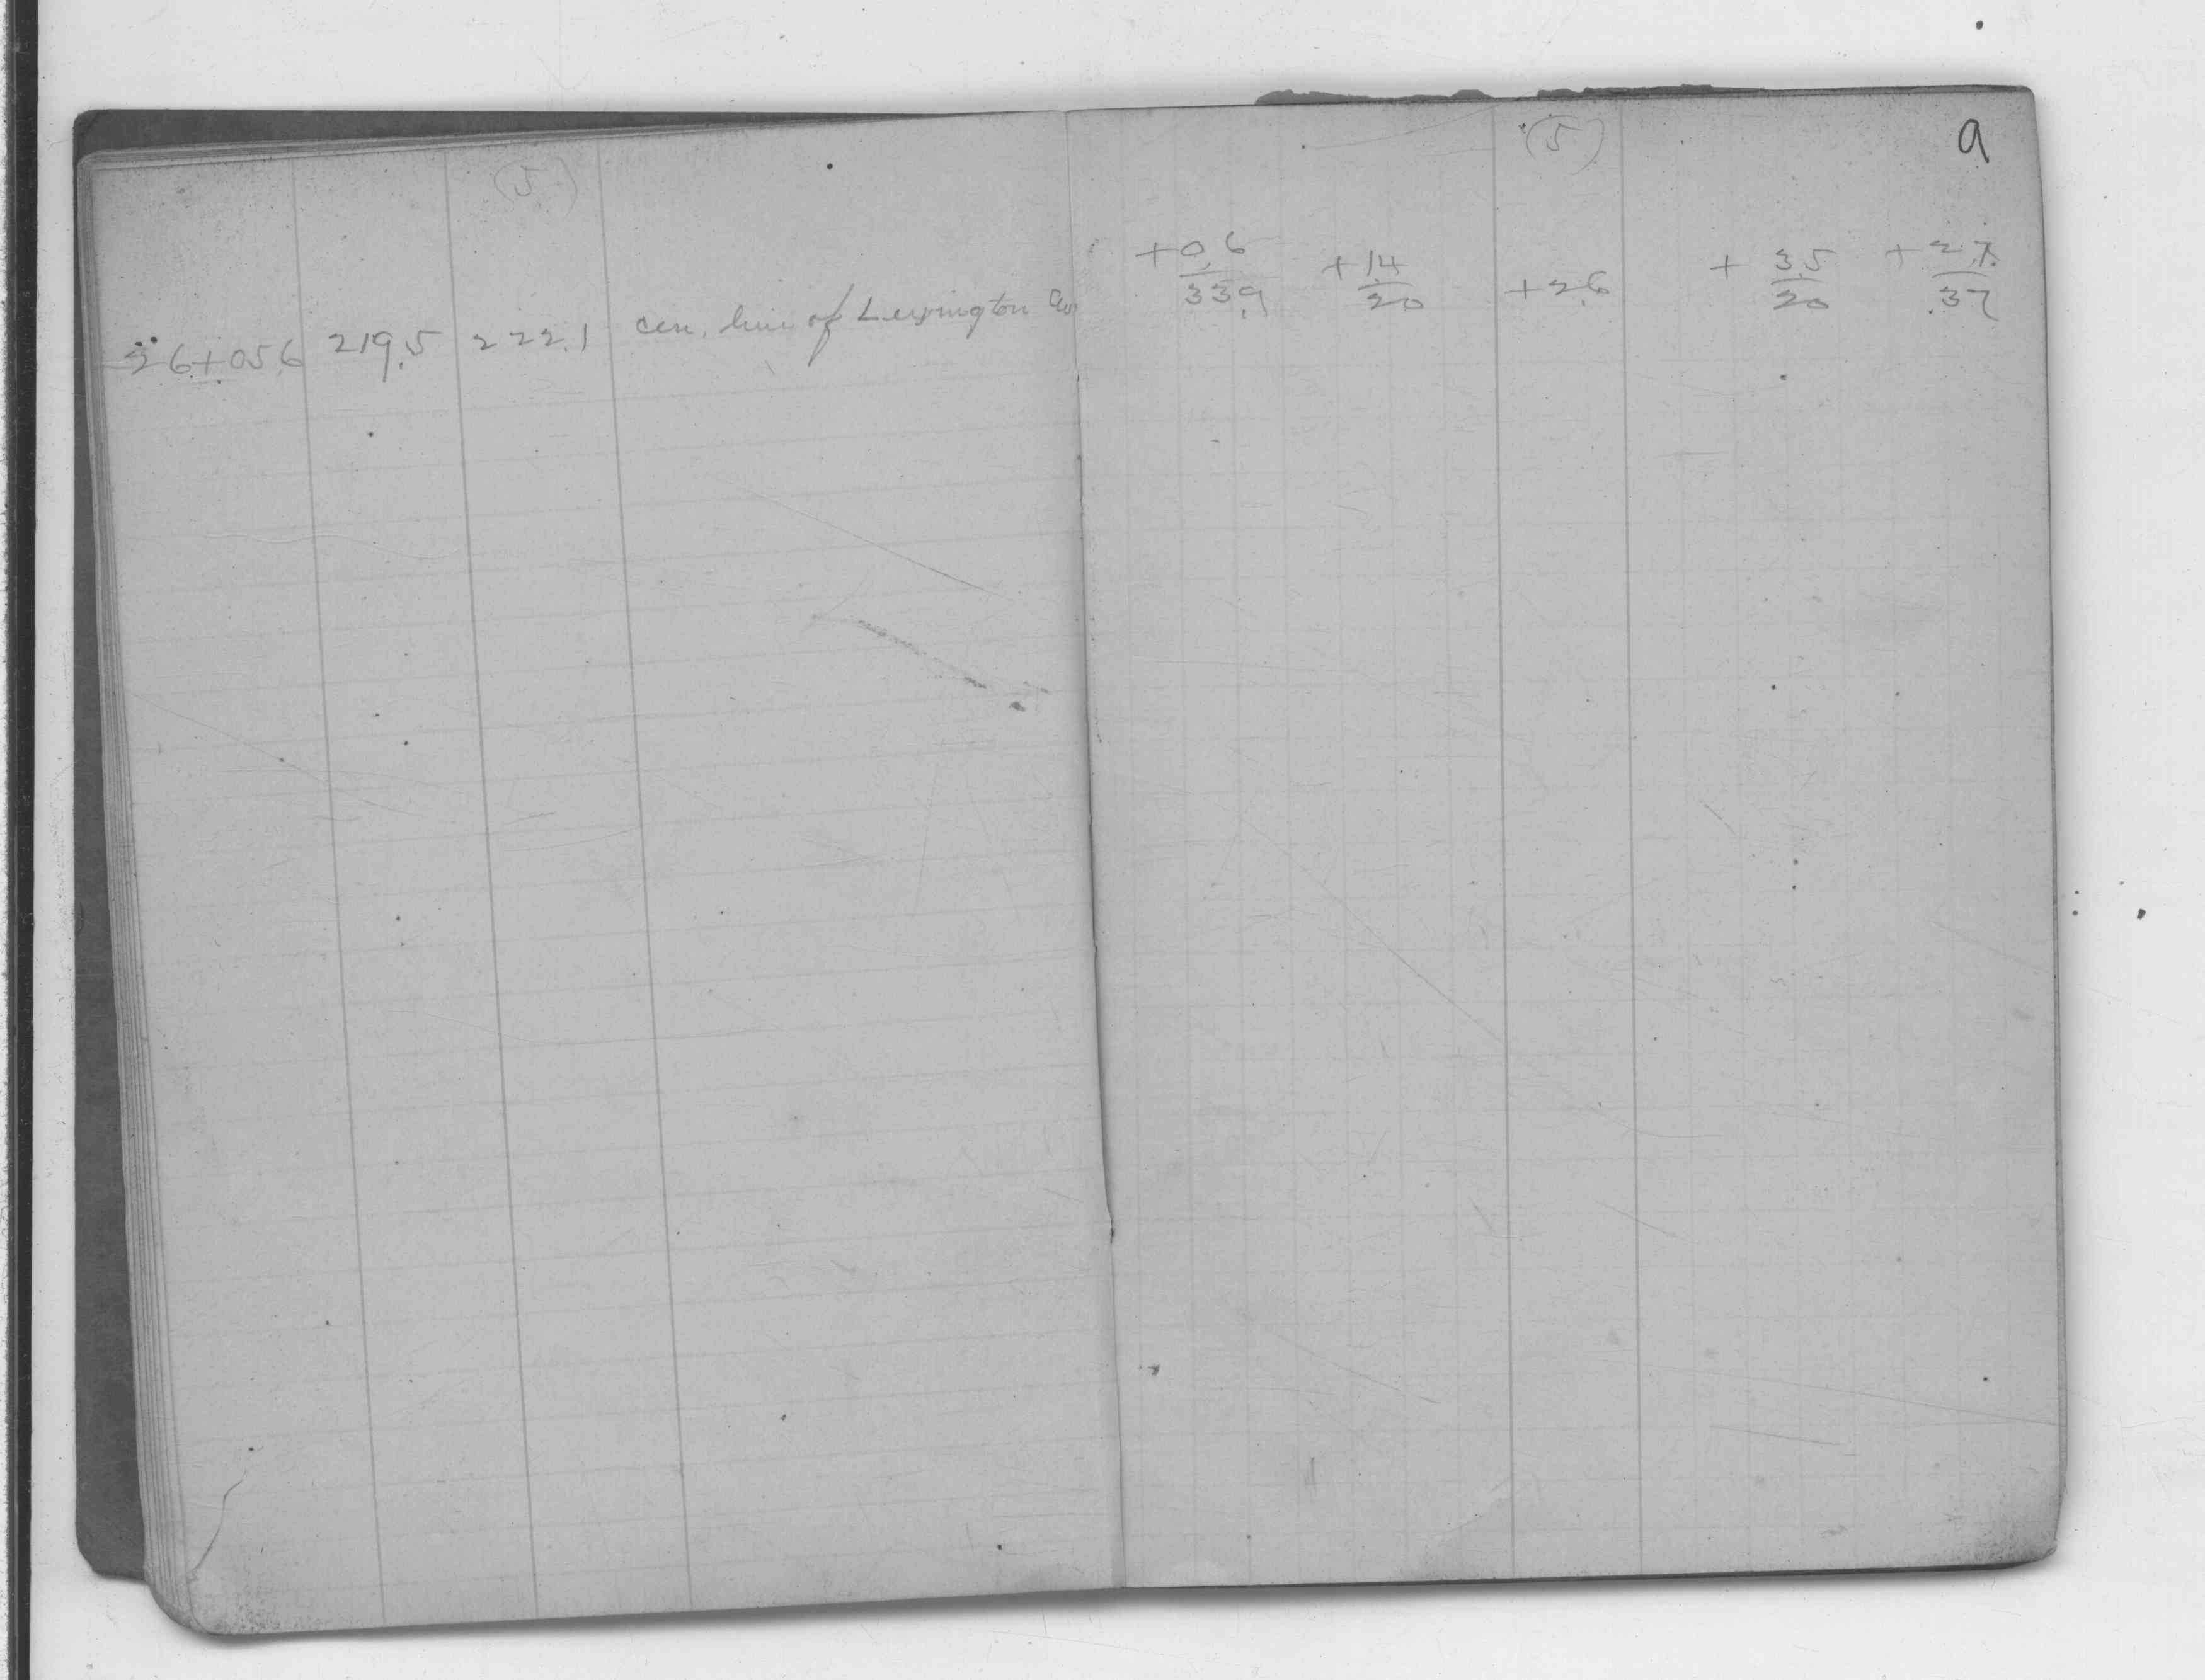 (5)
26+056 219.5 222.1 cen. line of Lexington Av
(5) 9
+0.6 +1.4 +2.6 + 3.5 + 2.7
33.9 20 20 37